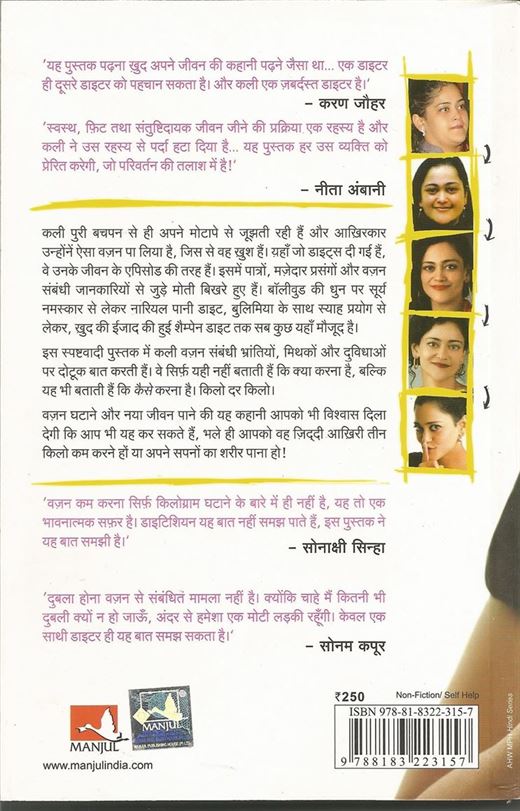 'यह पुस्तक पढ़ना ख़ुद अपने जीवन की कहानी पढ़ने जैसा था... एक डाइटर
ही दूसरे डाइटर को पहचान सकता है। और कली एक ज़बर्दस्त डाइटर है।'
– करण जौहर
'स्वस्थ, फ़िट तथा संतुष्टिदायक जीवन जीने की प्रक्रिया एक रहस्य है और
कली ने उस रहस्य से पर्दा हटा दिया है... यह पुस्तक हर उस व्यक्ति को
प्रेरित करेगी, जो परिवर्तन की तलाश में है!'
– नीता अंबानी
कली पुरी बचपन से ही अपने मोटापे से जूझती रही हैं और आख़िरकार
उन्होंनें ऐसा वज़न पा लिया है, जिस से वह ख़ुश हैं। यहाँ जो डाइट्स दी गई हैं,
वे उनके जीवन के एपिसोड की तरह हैं। इसमें पात्रों, मज़ेदार प्रसंगों और वज़न
संबंधी जानकारियों से जुड़े मोती बिखरे हुए हैं। बॉलीवुड की धुन पर सूर्य
नमस्कार से लेकर नारियल पानी डाइट, बुलिमिया के साथ स्याह प्रयोग से
लेकर, ख़ुद की ईजाद की हुई शैम्पेन डाइट तक सब कुछ यहाँ मौजूद है।
इस स्पष्टवादी पुस्तक में कली वज़न संबंधी भ्रांतियों, मिथकों और दुविधाओं
पर दोटूक बात करती हैं। वे सिर्फ़ यही नहीं बताती हैं कि क्या करना है, बल्कि
यह भी बताती हैं कि कैसे करना है। किलो दर किलो।
वज़न घटाने और नया जीवन पाने की यह कहानी आपको भी विश्वास दिला
देगी कि आप भी यह कर सकते हैं, भले ही आपको वह ज़िद्दी आख़िरी तीन
किलो कम करने हों या अपने सपनों का शरीर पाना हो!
'वज़न कम करना सिर्फ़ किलोग्राम घटाने के बारे में ही नहीं है, यह तो एक
भावनात्मक सफ़र है। डाइटिशियन यह बात नहीं समझ पाते हैं, इस पुस्तक ने
यह बात समझी है।'
– सोनाक्षी सिन्हा
'दुबला होना वज़न से संबंधित मामला नहीं है। क्योंकि चाहे मैं कितनी भी
दुबली क्यों न हो जाऊँ, अंदर से हमेशा एक मोटी लड़की रहूँगी। केवल एक
साथी डाइटर ही यह बात समझ सकता है।'
– सोनम कपूर
₹250 Non-Fiction/ Self Help
ISBN 978-81-8322-315-7
9 788183 223157
AHW MPH Hindi Series
MANJUL
MANJUL
www.manjulindia.com